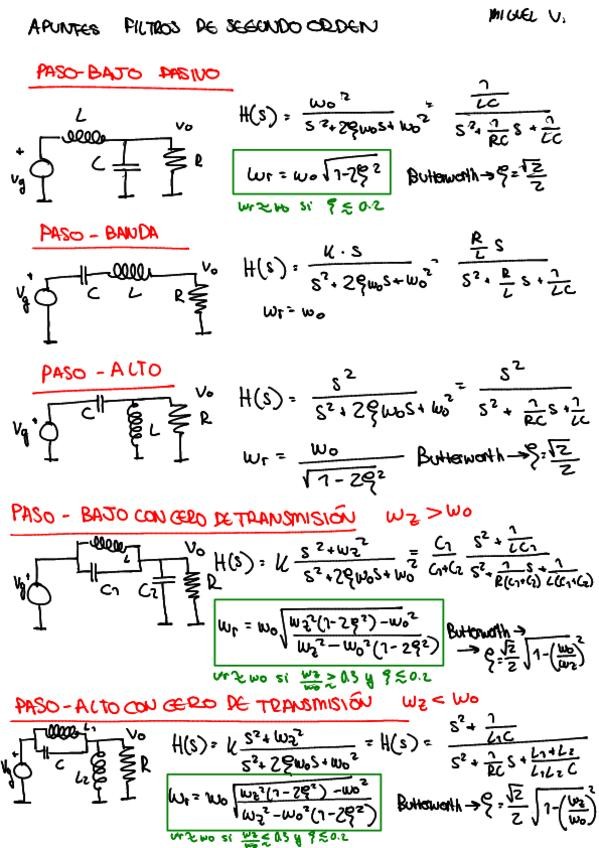 APUNTES FILTROS DE SEGUNDO ORDEN
MIGUEL V.
PASO-BAJO PASIVO
L C Vo R + Vg
H(s) = ωo² / (s² + 2ξωos + ωo²) = (1/LC) / (s² + (1/RC)s + 1/LC)
ωr = ωo √(1-2ξ²)
Butterworth → ξ = √2/2
ωr ≈ ωo si ξ ≤ 0.2
PASO - BANDA
Vg + C L Vo R
H(s) = K · s / (s² + 2ξωos + ωo²) = (R/L)s / (s² + (R/L)s + 1/LC)
ωr = ωo
PASO - ALTO
Vg + C L Vo R
H(s) = s² / (s² + 2ξωos + ωo²) = s² / (s² + (1/RC)s + 1/LC)
ωr = ωo / √(1-2ξ²)
Butterworth → ξ = √2/2
PASO - BAJO CON CERO DE TRANSMISIÓN ωz > ωo
Vg + L C1 C2 Vo R
H(s) = K (s² + ωz²) / (s² + 2ξωos + ωo²) = C1/(C1+C2) (s² + 1/LC1) / (s² + (1/R(C1+C2))s + 1/L(C1+C2))
ωr = ωo √((ωz²(1-2ξ²) - ωo²) / (ωz² - ωo²(1-2ξ²)))
Butterworth → → ξ = √2/2 √(1-(ωo/ωz)²)
ωr ≈ ωo si ωz/ωo ≥ 0.5 y ξ ≤ 0.2
PASO-ALTO CON CERO DE TRANSMISIÓN ωz < ωo
Vg + L1 C L2 Vo R
H(s) = K (s² + ωz²) / (s² + 2ξωos + ωo²) = H(s) = (s² + 1/L1C) / (s² + (1/RC)s + (L1+L2)/(L1L2C))
ωr = ωo √((ωz²(1-2ξ²) - ωo²) / (ωz² - ωo²(1-2ξ²)))
Butterworth → ξ = √2/2 √(1-(ωz/ωo)²)
ωr ≈ ωo si ωz/ωo ≤ 0.5 y ξ ≤ 0.2